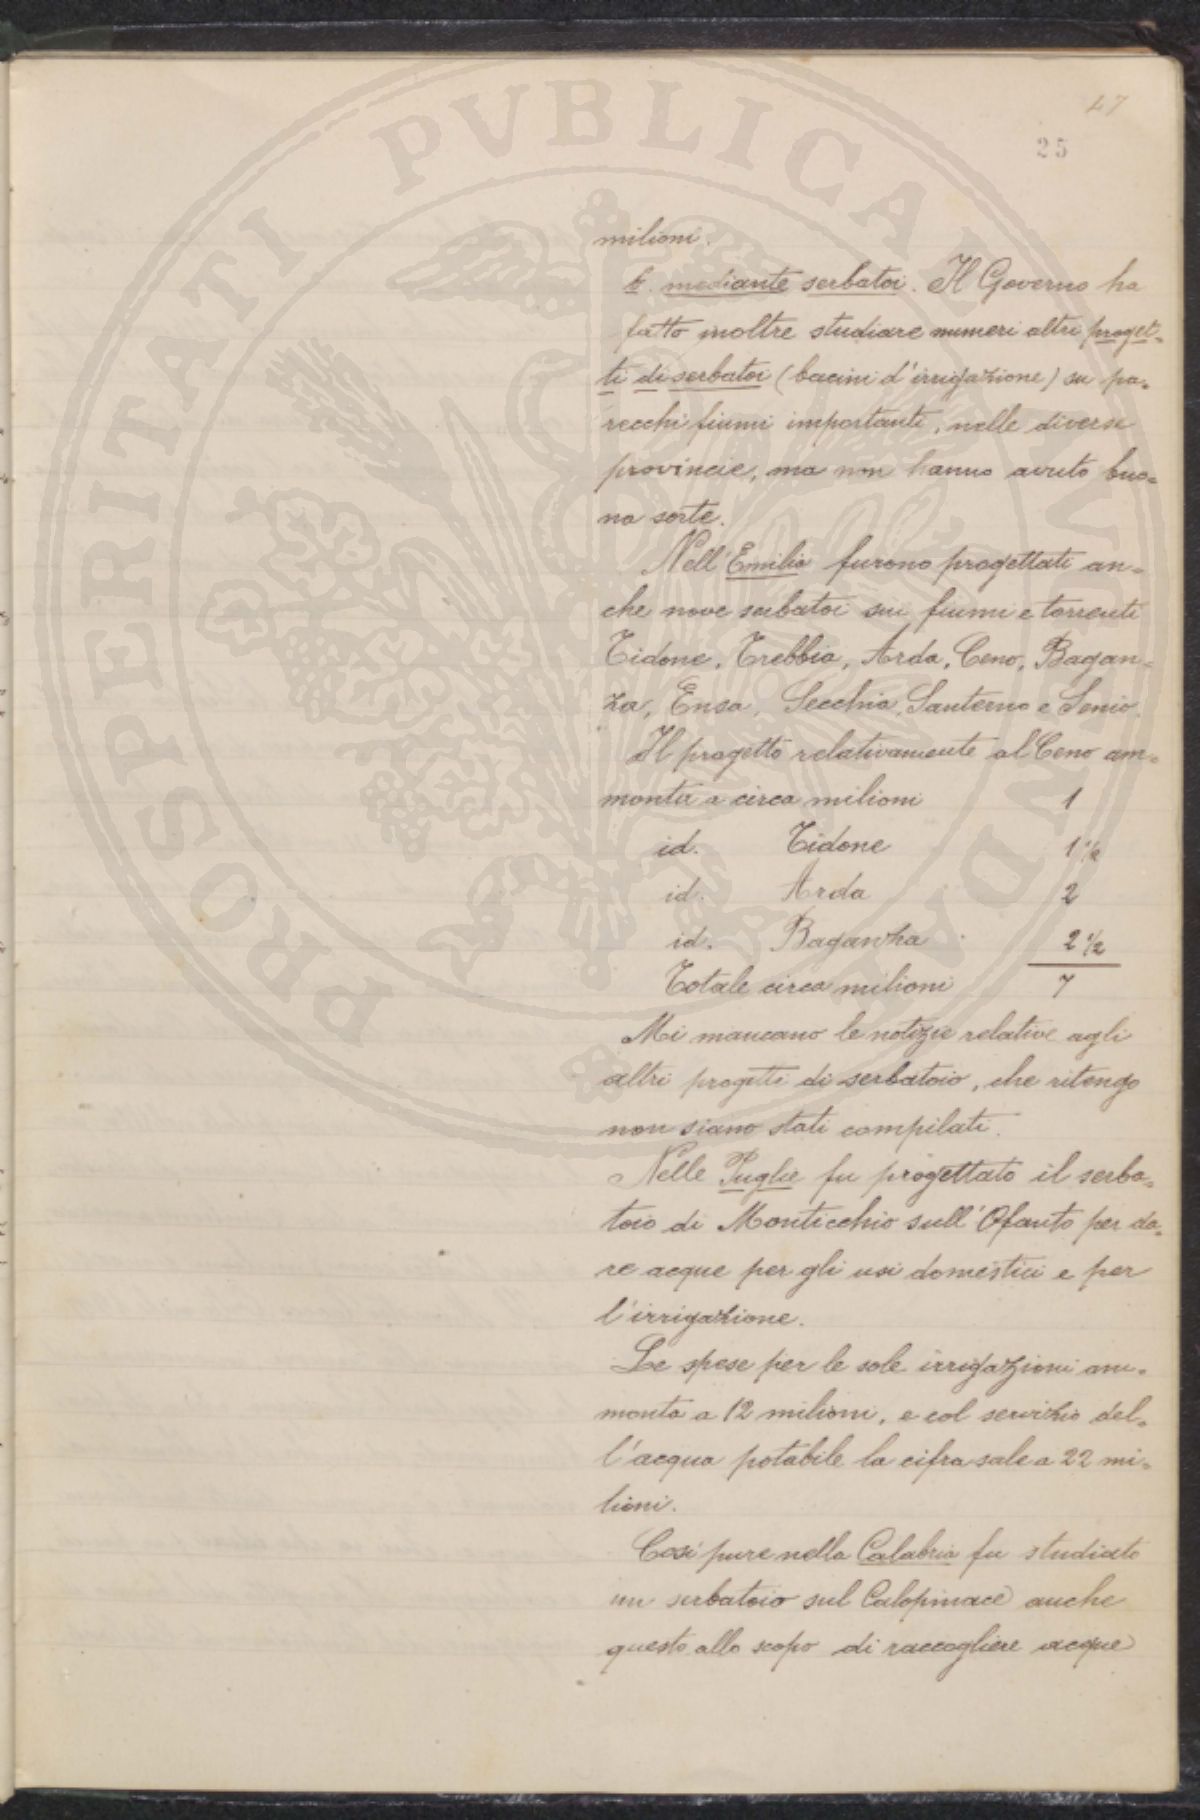 47
25
milioni.
b. mediante serbatoi. Il Governo ha
fatto inoltre studiare numeri altri proget=
ti di serbatoi (bacini d'irrigazione) su pa=
recchi fiumi importanti, nelle diverse
provincie, ma non hanno avuto buo=
na sorte.
Nell'Emilia furono progettati an=
che nove serbatoi sui fiumi e torrenti
Tidone, Trebbia, Arda, Ceno, Bagan=
za, Enza, Secchia, Santerno e Senio.
Il progetto relativamente al Ceno am=
monta a circa milioni 1
id. Tidone 1 1/2
id. Arda 2
id. Baganza 2 1/2
Totale circa milioni 7
Mi mancano le notizie relative agli
altri progetti di serbatoio, che ritengo
non siano stati compilati.
Nelle Puglie fu progettato il serba=
toio di Monticchio sull'Ofanto per da=
re acque per gli usi domestici e per
l'irrigazione.
Le spese per le sole irrigazioni am=
monta a 12 milioni, e col servizio del=
l'acqua potabile la cifra sale a 22 mi=
lioni.
Così pure nella Calabria fu studiato
un serbatoio sul Calopinace anche
questo allo scopo di raccogliere acque
PROSPERITATI PVBLICAE